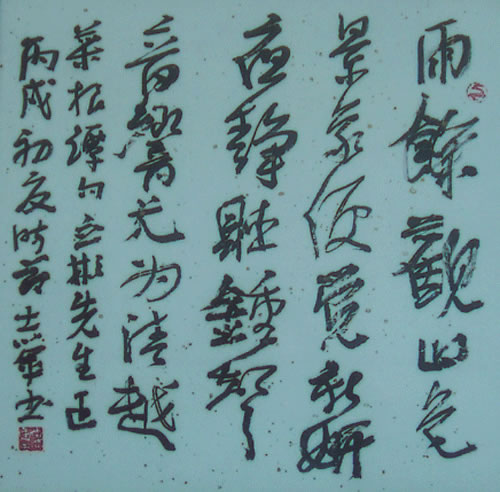 雨餘觀山色
景象便覺新妍
夜靜聽鐘聲
音響尤為清越
菜根譚句立彬先生正
丙戌初夏時節士軍書